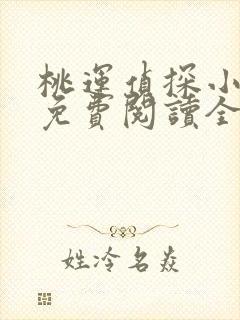 桃運偵探小
免費閱讀全
姓冷名焱